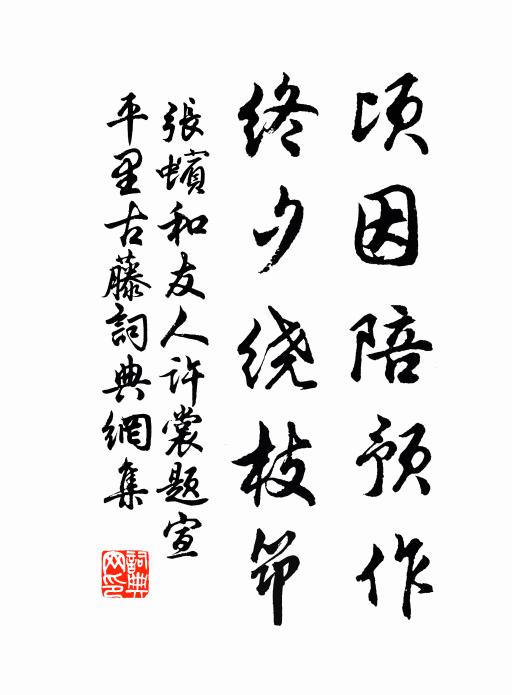 頃因陪預作
終夕繞枝筇
張蠙和友人許裳題宣
平里古藤詞典網集
詞典
网印